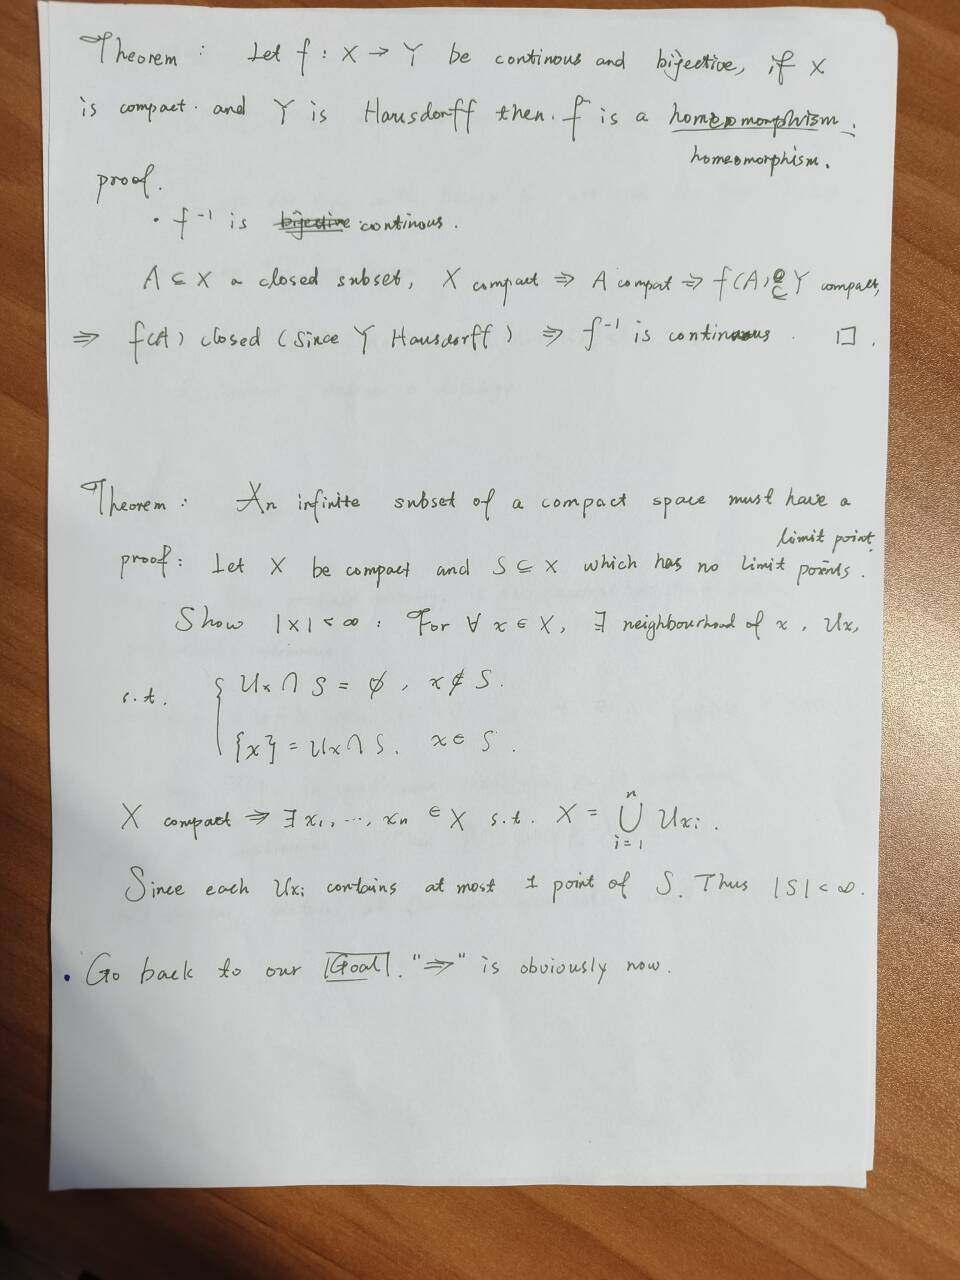 Theorem : Let f : X → Y be continous and bijective, if X
is compact. and Y is Hausdorff then. f is a homeomorphism.
homeomorphism.
proof.
• f⁻¹ is bijective continous.
A ⊆ X a closed subset, X compact ⇒ A compat ⇒ f(A) ⊆ Y compact,
⇒ f(A) closed (since Y Hausdorff) ⇒ f⁻¹ is continuous. □.
Theorem : An infinite subset of a compact space must have a
limit point.
proof : Let X be compact and S ⊆ X which has no limit points.
Show |X| < ∞ : For ∀ x ∈ X, ∃ neighbourhood of x, Ux,
s.t. { Ux ∩ S = ∅, x ∉ S.
{x} = Ux ∩ S. x ∈ S.
X compact ⇒ ∃ x₁, ..., xn ∈ X s.t. X = ⋃ⁿᵢ₌₁ Uxi.
Since each Uxi contains at most 1 point of S. Thus |S| < ∞.
• Go back to our Goal. "⇒" is obviously now.